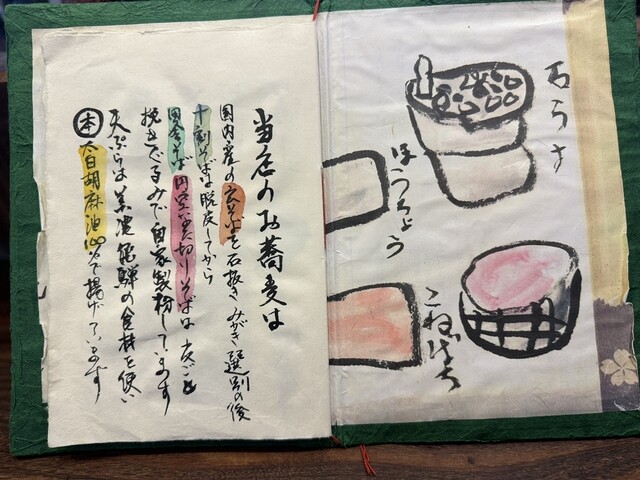 石うす
ほうちょう
こねばち
当店のお蕎麦は
国内産の玄そばを石抜きみがき選別の後
十割そばは脱皮してから
田舎そば円空 切りそばは皮ごと
挽きぐるみで自家製粉しています
天ぷらは美濃飛騨の食材を使い
本 太白胡麻油 で揚げています